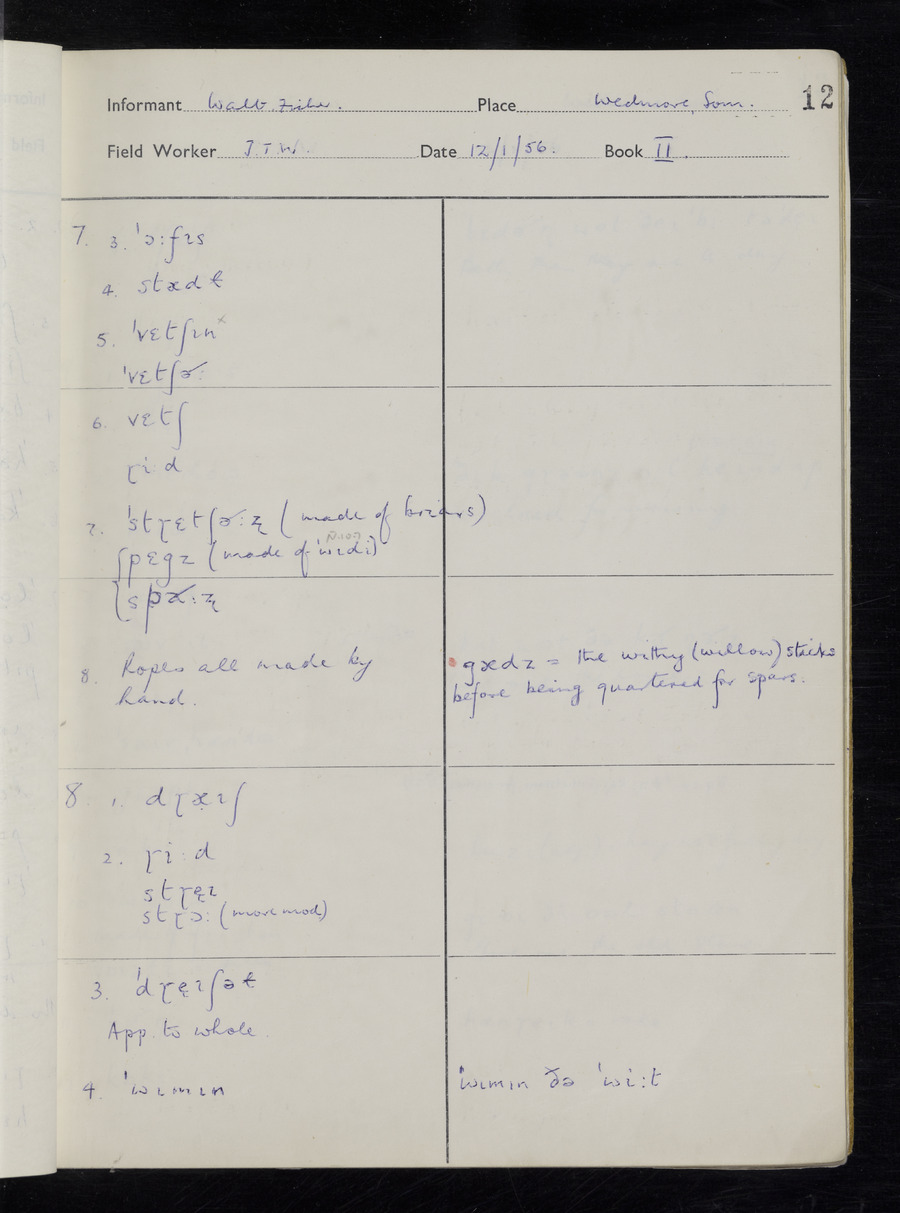 Informant Walt. Fisher. Place Wedmore, Som. 12
Field Worker J.T.W. Date 12/1/56. Book II.
7. 3. ˈɔ:fɪs
4. stædɫ
5. ˈvɛtʃɪn
ˈvɛtʃɚ:
6. vɛtʃ
ɽi:d
7. ˈstɽɛtʃɚ:ʐ (made of briars)
ʃpɛgz (made of ˈwɪdi)
8. Ropes all made by
hand.
gædz = the withy (willow) sticks
before being quartered for spars.
8 1. dɽæɪʃ
2. ɽi:d
stɽɛɪ
stɽɔ: (more mod)
3. ˈdɽɛɪʃəɫ
App. to whole.
4. ˈwɪmɪn
ˈwɪmɪn ðə ˈwi:t